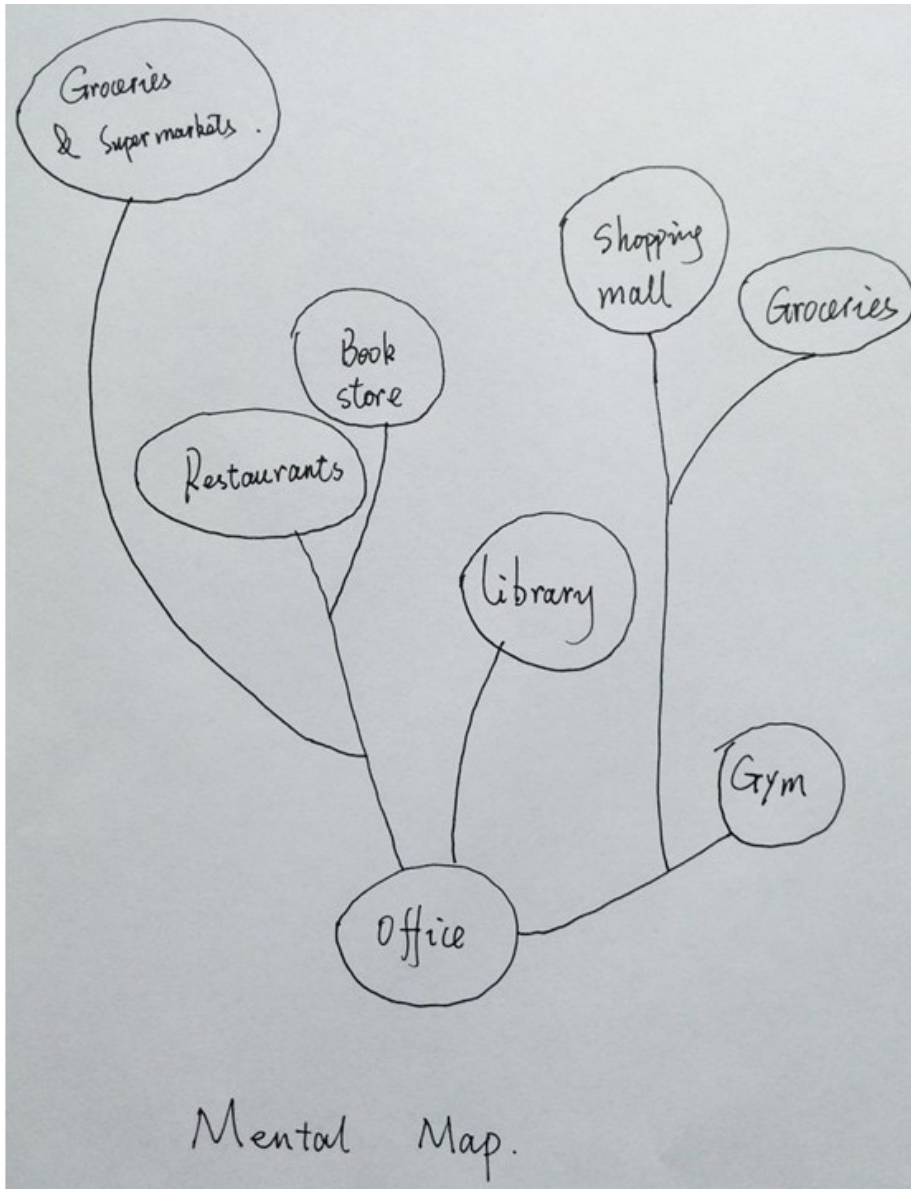 Groceries
& Supermarkets.
Shopping
mall
Groceries
Book
store
Restaurants
library
Gym
Office
Mental Map.